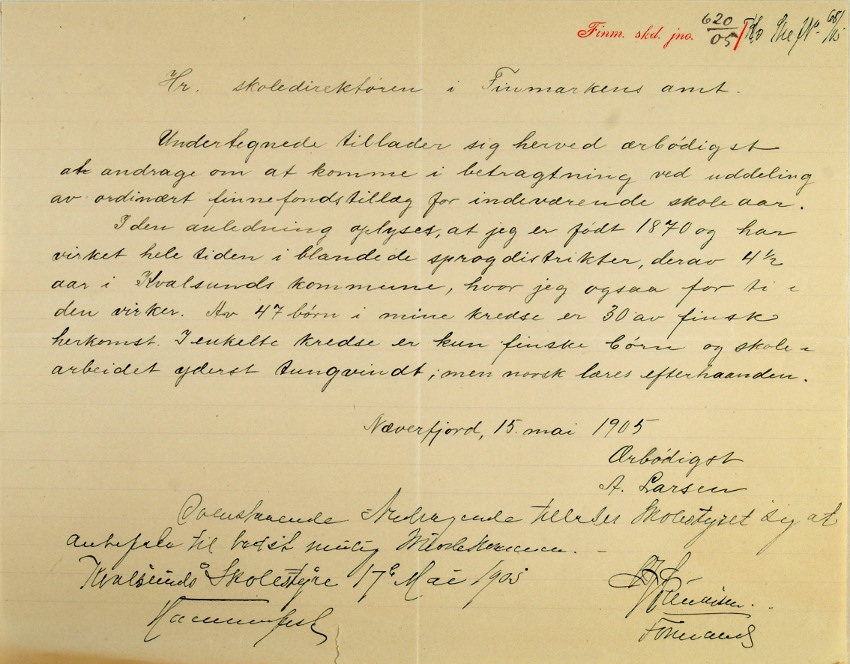 Finm. skd. jno. 620/05
Hr. skoledirektøren i Finmarkens amt.
Undertegnede tillader sig herved ærbödigst
at andrage om at komme i betragtning ved uddeling
av ordinært finnefondstillæg for indeværende skoleaar.
I den anledning oplyses, at jeg er født 1870 og har
virket hele tiden i blandede sprogdistrikter, derav 4½
aar i Kvalsunds kommune, hvor jeg ogsaa for ti-
den virker. Av 47 börn i mine kredse er 30 av finsk
herkomst. I enkelte kredse er kun finske börn og skole-
arbeidet yderst tungvindt; men norsk læres efterhaanden.
Næverfjord, 15. mai 1905
Ærbödigst
A. Larsen
Ovenstaaende Andragende tillader Skolestyret sig at
anbefale til bedst mulig Imødekommen. -
Kvalsunds Skolestyre 17de Mai 1905
Hammerfest
Formand